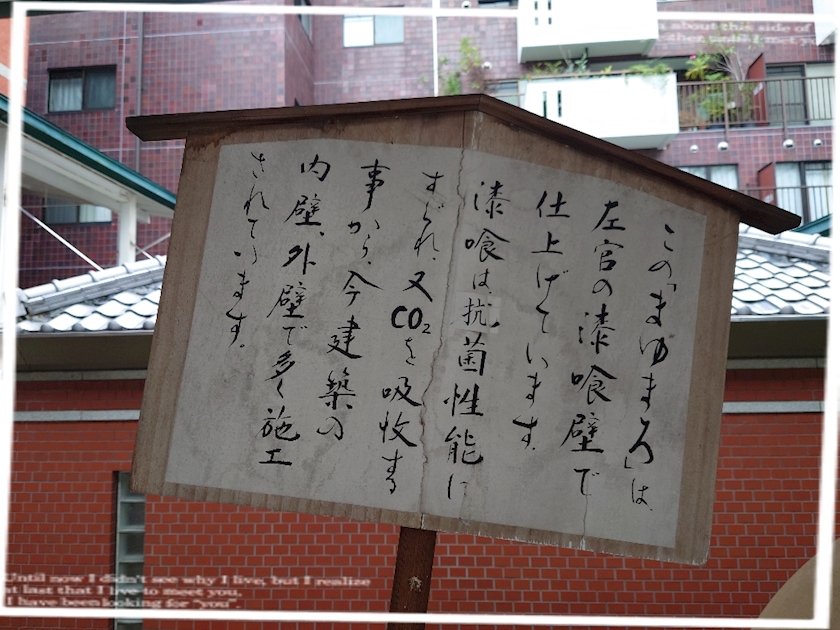 この「まゆまろ」は、
左官の漆喰壁で
仕上げています。
漆喰は、抗菌性能に
すぐれ、又CO₂を吸収する
事から、今建築の
内壁、外壁で多く施工
されています。
Until now I didn't see why I live, but I realize
at last that I live to meet you,
I have been looking for "you".